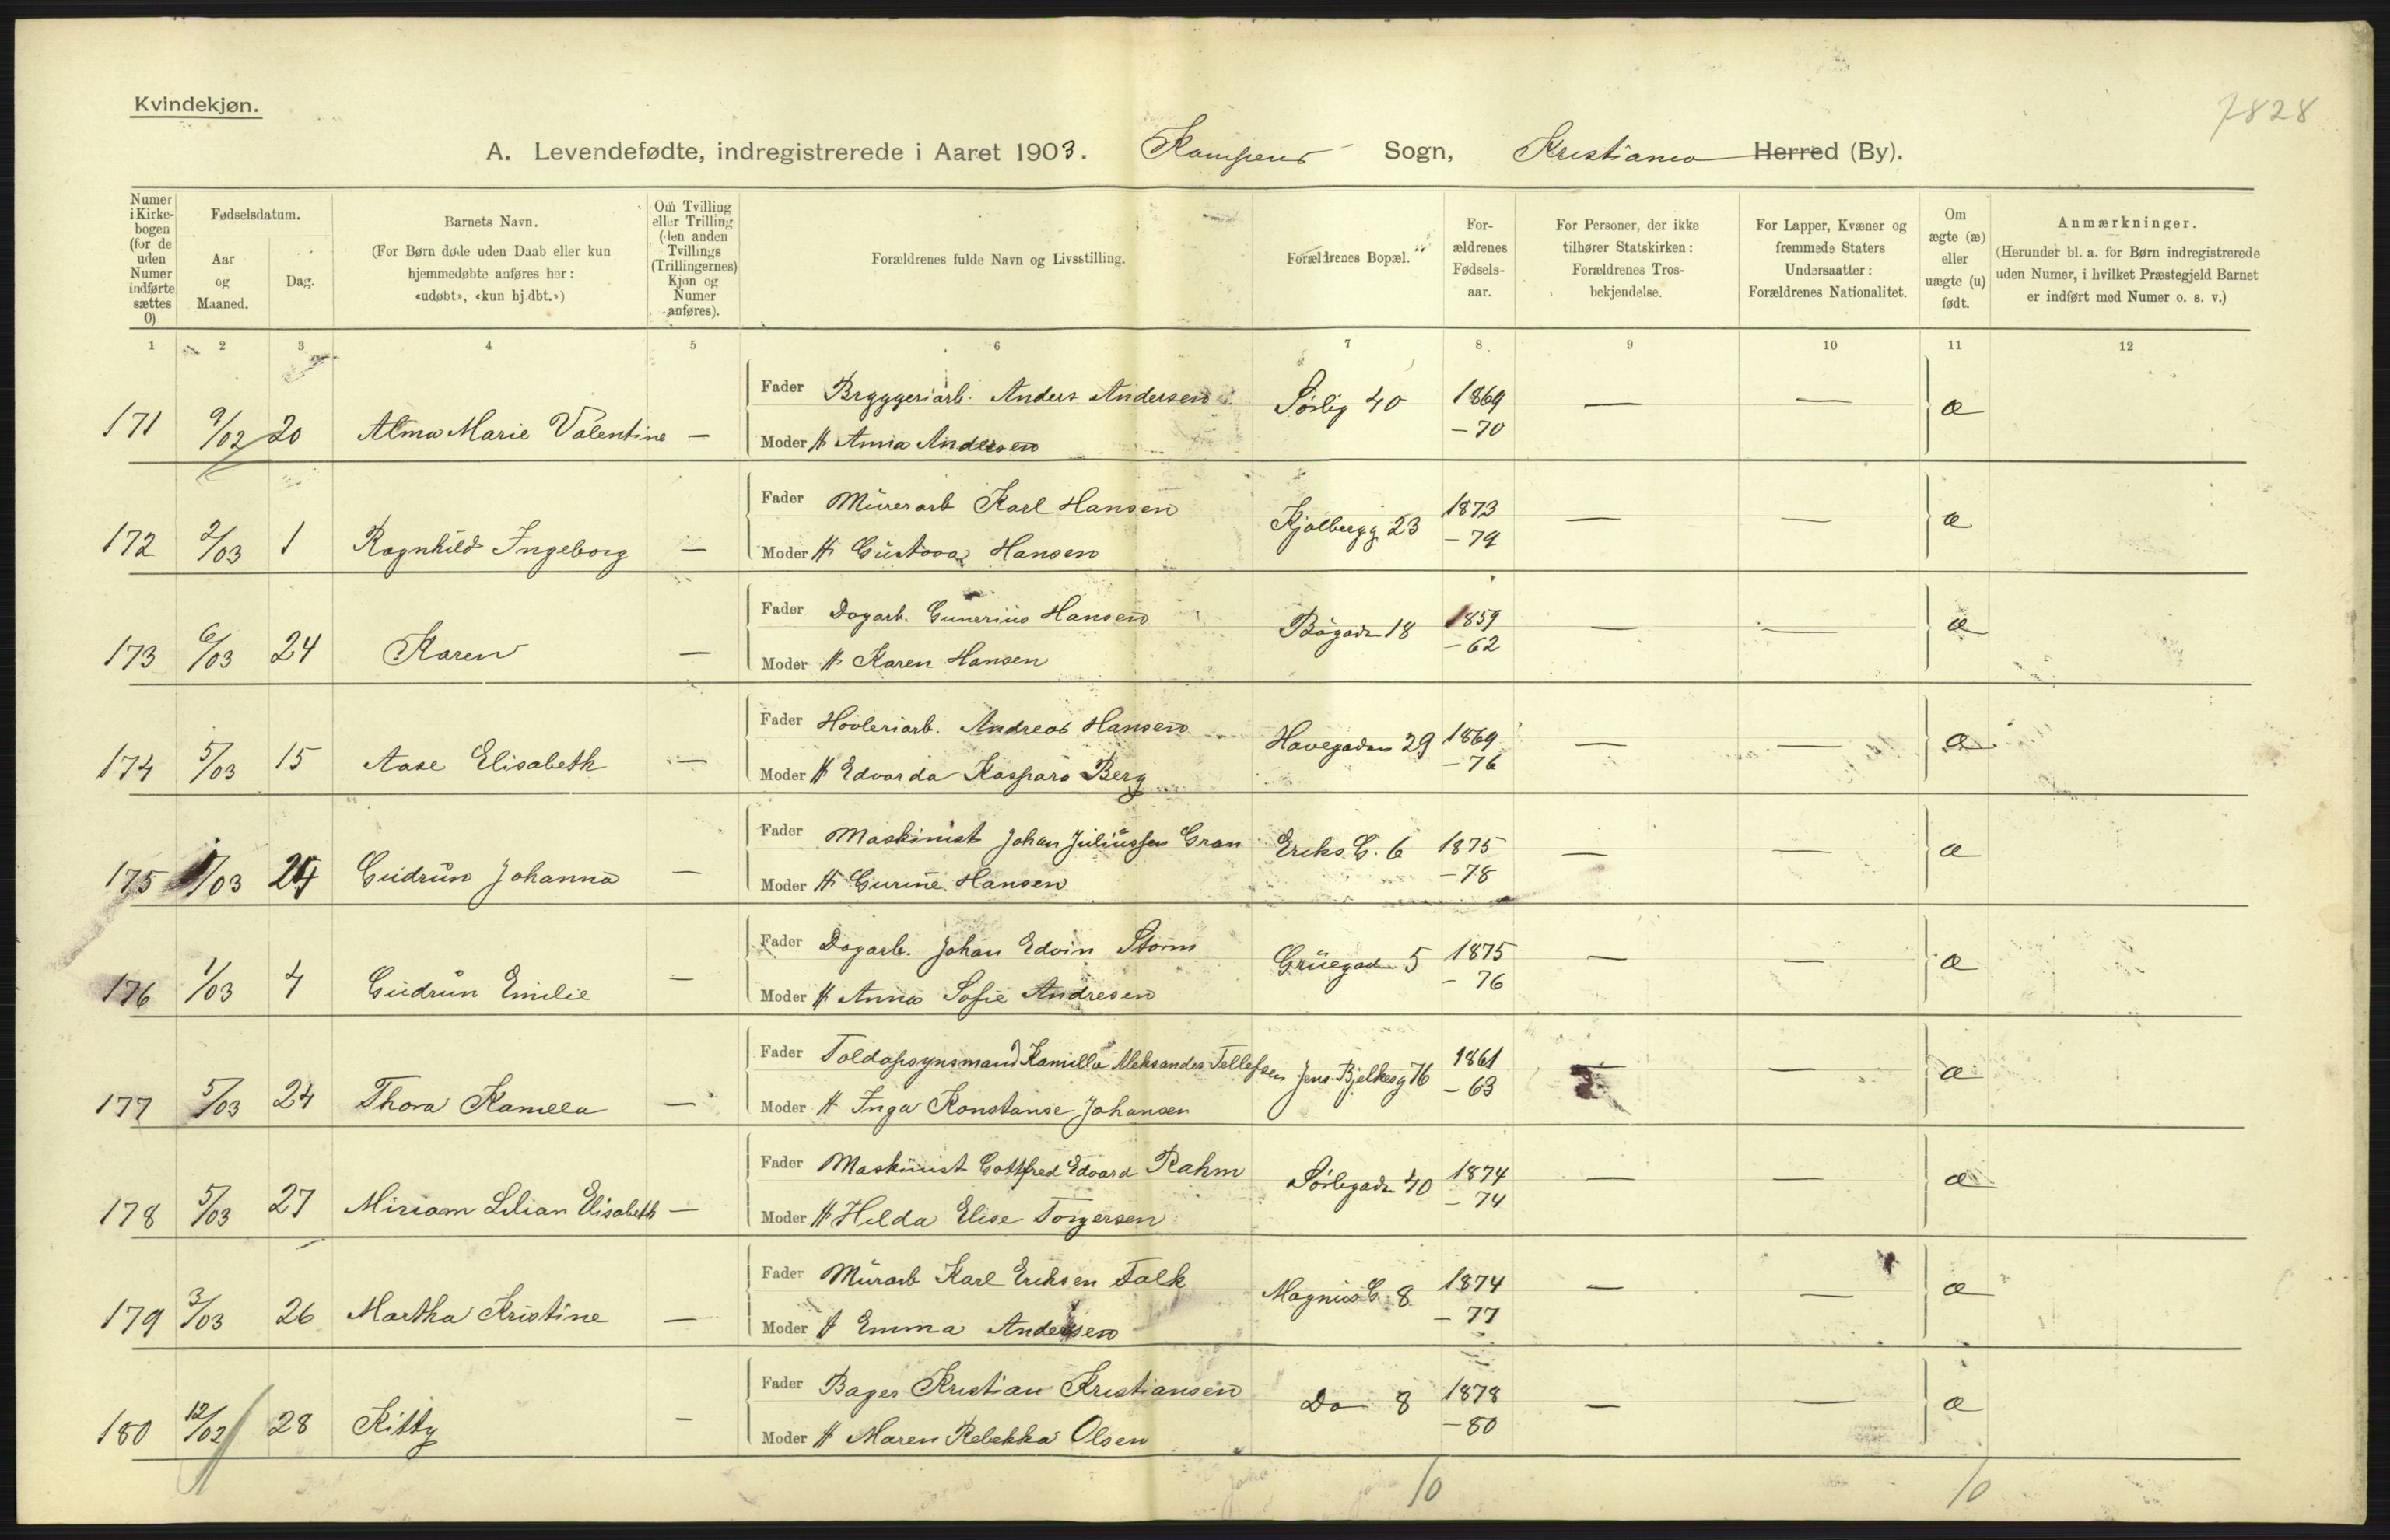 Kvindekjøn.
7828
A. Levendefødte, indregistrerede i Aaret 1903. Kampens Sogn, Kristiania Herred (By).
Numer i Kirkebogen (for de uden Numer indførte sættes 0)
Fødselsdatum.
Aar og Maaned.
Dag.
Barnets Navn.
(For Børn døde uden Daab eller kun hjemmedøbte anføres her: «udøbt», «kun hj.dbt.»)
Om Tvilling eller Trilling (den anden Tvillings (Trillingernes) Kjøn og Numer anføres).
Forældrenes fulde Navn og Livsstilling.
Forældrenes Bopæl.
Forældrenes Fødselsaar.
For Personer, der ikke tilhører Statskirken: Forældrenes Trosbekjendelse.
For Lapper, Kvæner og fremmede Staters Undersaatter: Forældrenes Nationalitet.
Om ægte (æ) eller uægte (u) født.
Anmærkninger.
(Herunder bl. a. for Børn indregistrerede uden Numer, i hvilket Præstegjeld Barnet er indført med Numer o. s. v.)
1 2 3 4 5 6 7 8 9 10 11 12
171 9/02 20 Alma Marie Valentine — Fader Bryggeriarb. Anders Andersen Sørlig 40 1869 — — æ
Moder H Anna Andersen — 70
172 2/03 1 Ragnhild Ingeborg — Fader Murerarb Karl Hansen Kjølbergg 23 1873 — — æ
Moder H Gustava Hansen — 79
173 6/03 24 Karen — Fader Dagarb. Gunerius Hansen Bögaden 18 1859 — — æ
Moder H Karen Hansen — 62
174 5/03 15 Aase Elisabeth — Fader Høvleriarb. Andreas Hansen Havegaden 29 1869 — — æ
Moder H Edvarda Kaspara Berg — 76
175 /03 Gudrun Johanna — Fader Maskinist Johan Juliussen Gran Eriks G. 6 1875 — — æ
Moder H Gurine Hansen — 78
176 1/03 4 Gudrun Emilie — Fader Dagarb. Johan Edvin Storm Grüegaden 5 1875 — — æ
Moder H Anna Sofie Andresen — 76
177 5/03 24 Thora Kamilla — Fader Toldopsynsmand Kamillo Aleksander Tellefsen Jens Bjelkesg 76 1861 — — æ
Moder H Inga Konstanse Johansen — 63
178 5/03 27 Miriam Lilian Elisabeth — Fader Maskinist Gottfred Edvard Rahm Sørligaden 40 1874 — — æ
Moder H Hilda Elise Torgersen — 74
179 3/03 26 Martha Kristine — Fader Murarb Karl Eriksen Falk Magnus G. 8 1874 — — æ
Moder H Emma Andersen — 77
180 12/02 28 Kitty — Fader Bager Kristian Kristiansen Do 8 1878 — — æ
Moder H Maren Rebekka Olsen — 80
10 10